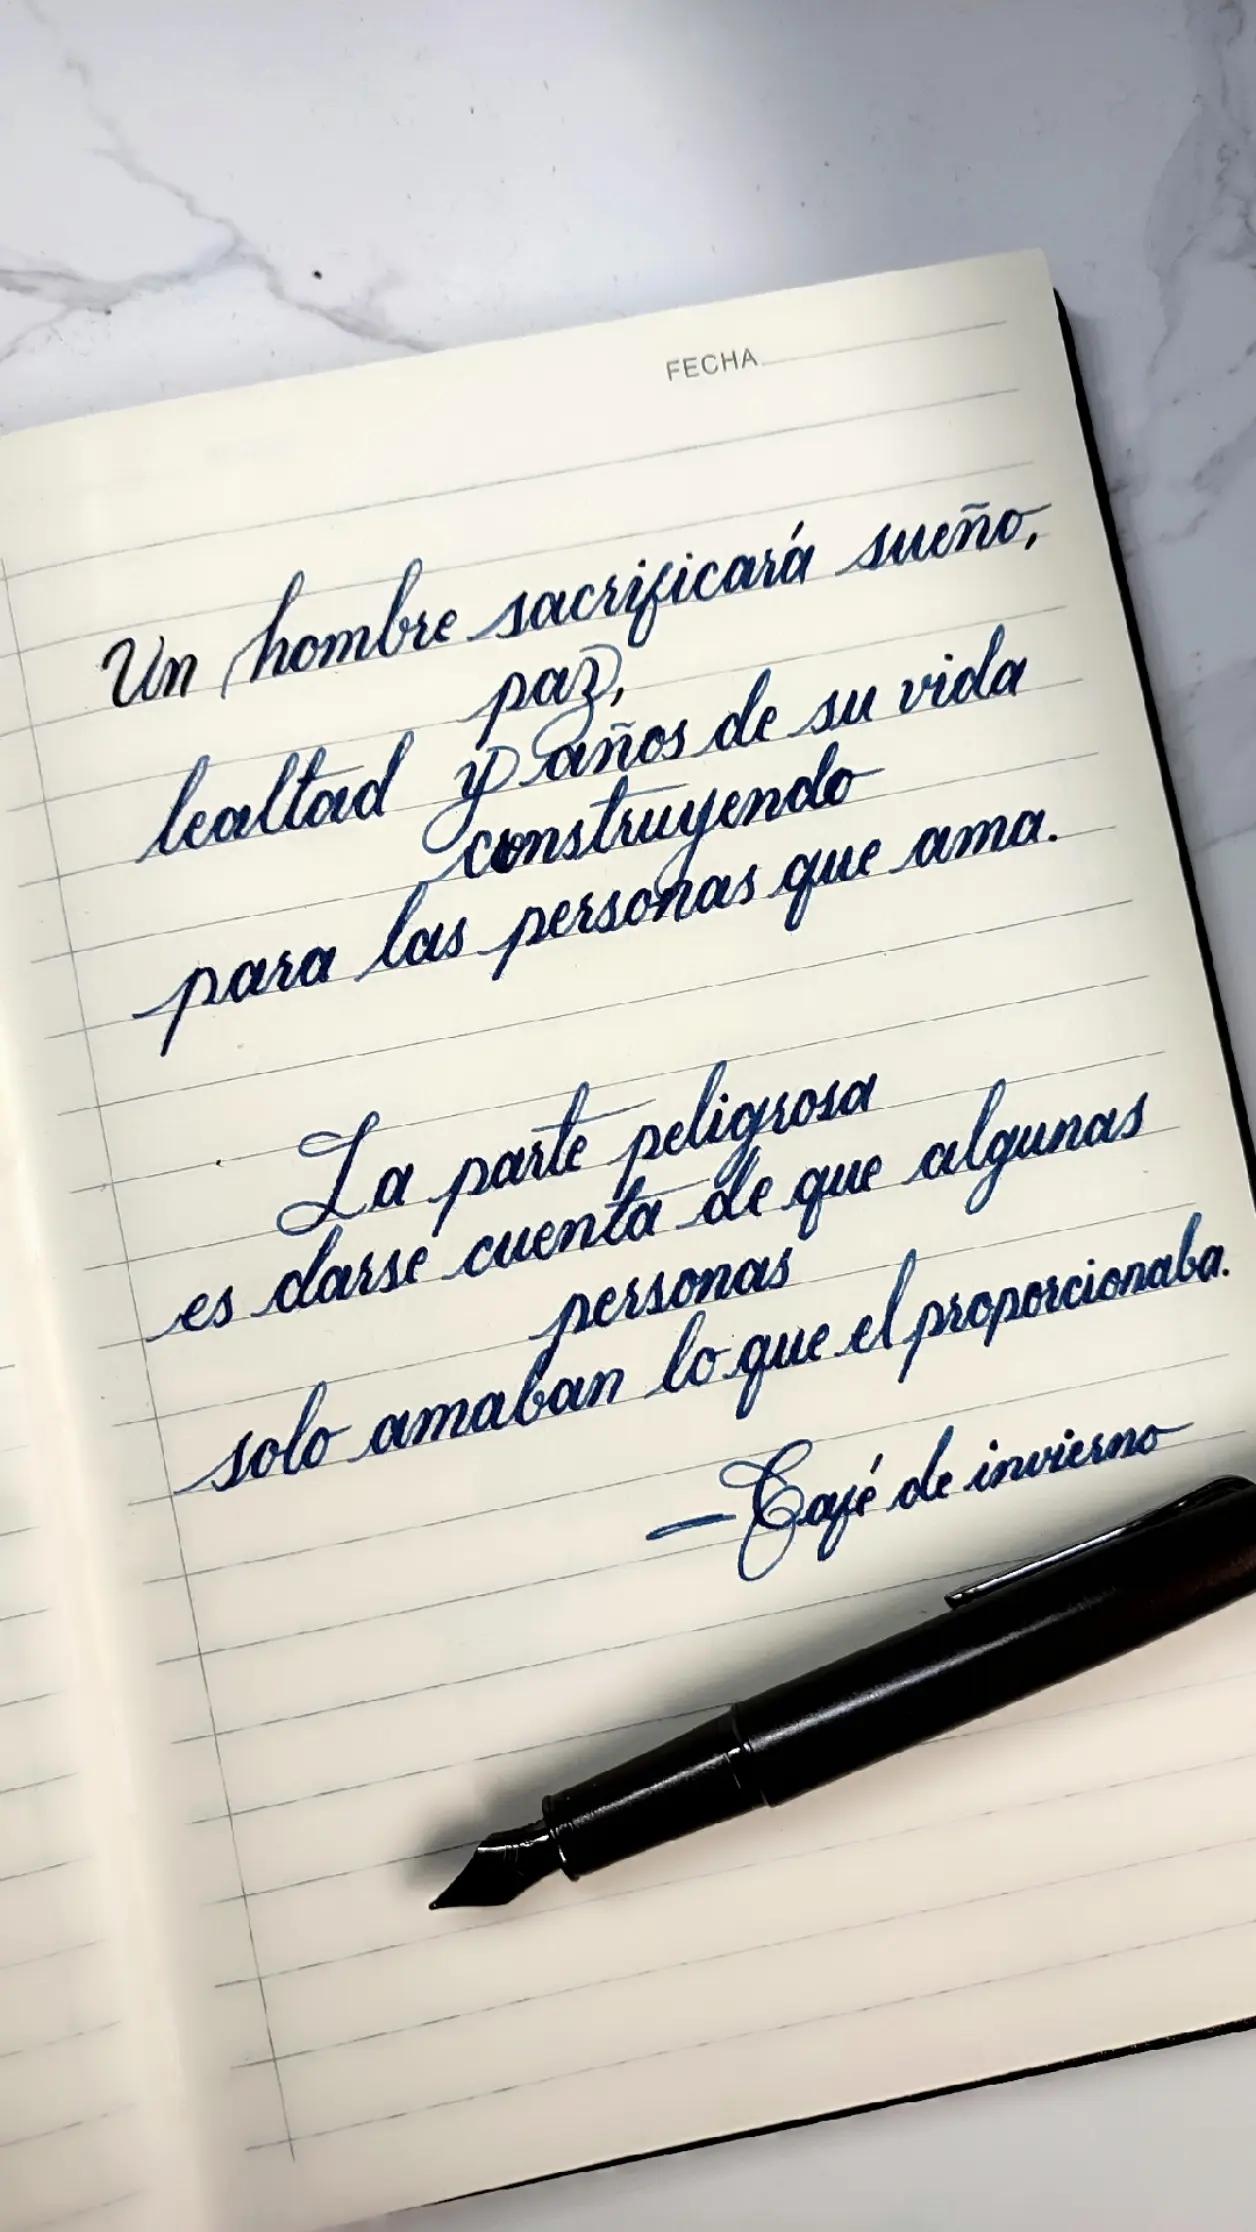 FECHA
Un hombre sacrificará sueño,
paz,
lealtad y años de su vida
construyendo
para las personas que ama.
La parte peligrosa
es darse cuenta de que algunas
personas
solo amaban lo que el proporcionaba.
—Café de invierno